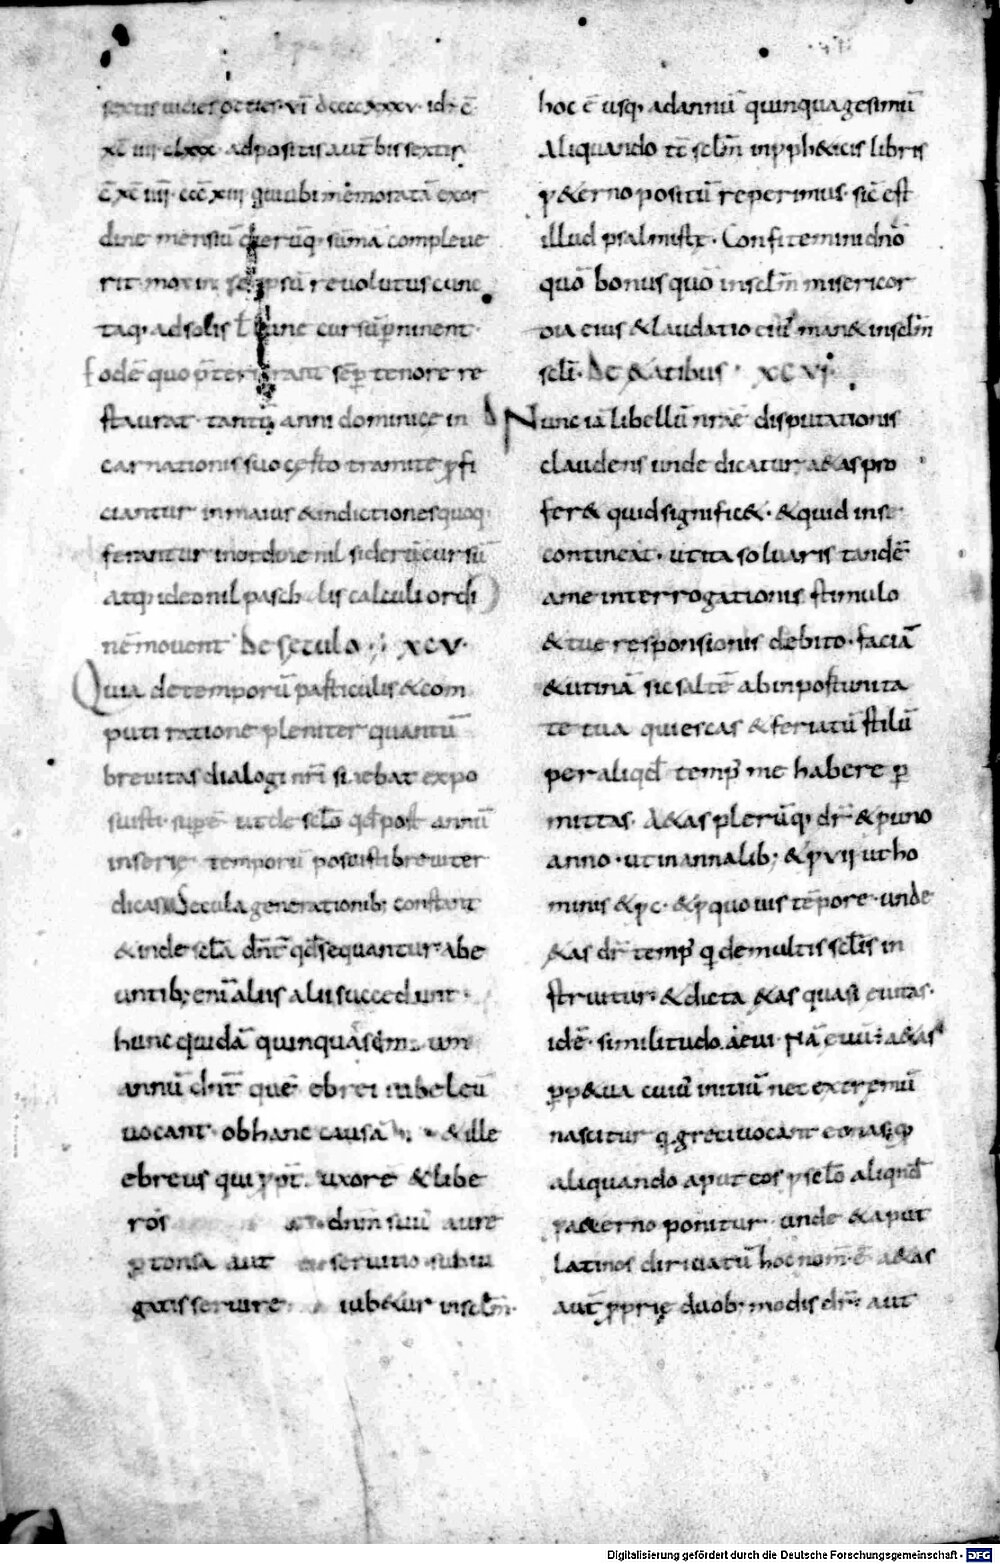 sexcis uicies octies · vi dccccxxxv · id÷ ē
xc̄ iiii clxxx · adpositis aut̄ bissextis
ē xc̄ iiii · ccc̄ xiii qui ubi memoratā exor
dine mensiū dierūq; sūma compleue
rit mox in se ipsū reuolutus cunc
taq; ad solis t lune cursū ꝑtinent ·
eodē quo p̄terierant sēꝑ tenore re
staurat · tantū anni dominice in
carnationis suo cępto tramite ꝓfi
ciantur in maius & indictionesquoq;
ferantur in ordine nil siderū cursū
atq; ideo nil paschalis calculi ordi
nē mouent De sęculo · XCV ·
Quia de temporū particulis & com
puti ratione pleniter quantū
breuitas dialogi nr̄i sinebat expo
suisti · supē ut de sclō qd̄ post annū
in serie temporū posuisti breuiter
dicas Secula generationib; constant
& inde sclā dn̄t qd̄ sequantur · abe
untib; eni alus alii succedunt ·
hunc quidā quinquagesimum
annū dn̄t quē ebrei iubeleū
uocant · ob hanc causā & ille
ebreus qui ꝓpt̄ uxore & libe
ros dn̄m suū aure
ꝑtonsa aut seruitio subiu
gatis seruire iubetur in sclm̄ ·
hoc ē usq; ad annū quinquagesimū
Aliquando tē sclm̄ in ꝓph&icis libris
ꝓ &erno positū reperimus · sic est
illud psalmistę · Confitemini dn̄o
quō bonus quō in sclm̄ misericor
dia eius & laudatio eiuſ man& in sclm̄
scli · De &atibus · XCVI ·
Nunc iā libellū nr̄ae disputationis
claudens unde dicatur a&as pro
fer& quid signific& · & quid in se
contineat · ut ita soluaris tandē
a me interrogationis stimulo
& tue responsionis debito · faciā
& utinā sic saltē ab inpostunita
te tua quiescas & feriatū stilū
per aliqd̄ tempꝰ me habere ꝑ
mittas · A&as plerūq; dr̄ & ꝓ uno
anno · ut in annalib; & ꝓ vii ut ho
minis & ꝓ c · & ꝓ quouis tēpore · unde
&as dr̄ tempꝰ q̇ de multis sclis in
struitur · & dicta &as quasi euitas ·
idē · similitudo aeui · Nā euū ÷ a&as
ꝑp&ua cuiuſ initiū nec extremū
nascitur q greci uocant eonas; qd̄
aliquando aput eos ꝓ sclō aliqnd̄
ꝓ a&erno ponitur · unde & aput
Latinos diriuatū hoc nom̄ · ē a&as
aut̄ ꝓprię duob; modis dr̄ · aut
Digitalisierung gefördert durch die Deutsche Forschungsgemeinschaft - DFG